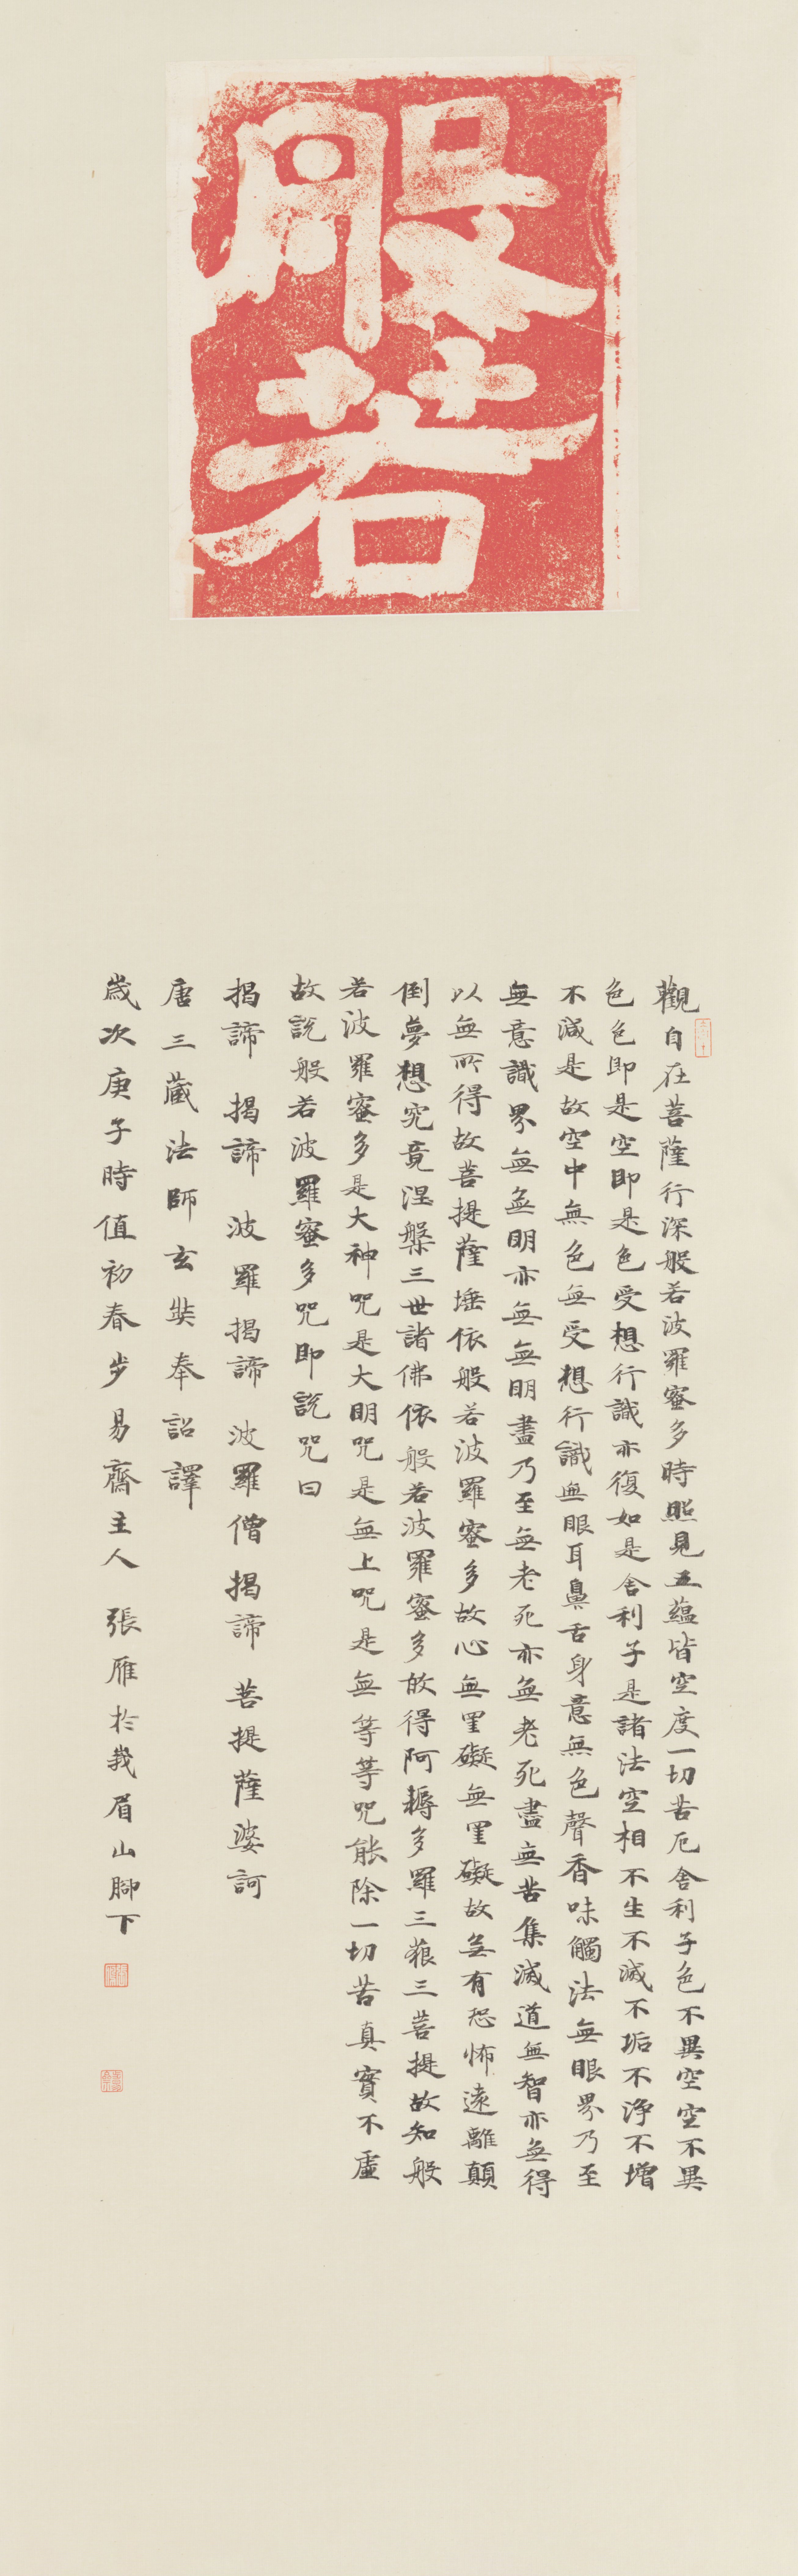 般若
觀自在菩薩行深般若波羅蜜多時照見五蘊皆空度一切苦厄舍利子色不異空空不異
色色即是空即是色受想行識亦復如是舍利子是諸法空相不生不滅不垢不淨不增
不減是故空中無色無受想行識無眼耳鼻舌身意無色聲香味觸法無眼界乃至
無意識界無無明亦無無明盡乃至無老死亦無老死盡無苦集滅道無智亦無得
以無所得故菩提薩埵依般若波羅蜜多故心無罣礙無罣礙故無有恐怖遠離顛
倒夢想究竟涅槃三世諸佛依般若波羅蜜多故得阿耨多羅三藐三菩提故知般
若波羅蜜多是大神咒是大明咒是無上咒是無等等咒能除一切苦真實不虛
故說般若波羅蜜多咒即說咒曰
揭諦 揭諦 波羅揭諦 波羅僧揭諦 菩提薩婆訶
唐三藏法師玄奘奉詔譯
歲次庚子時值初春步易齋主人 張雁於峩眉山腳下